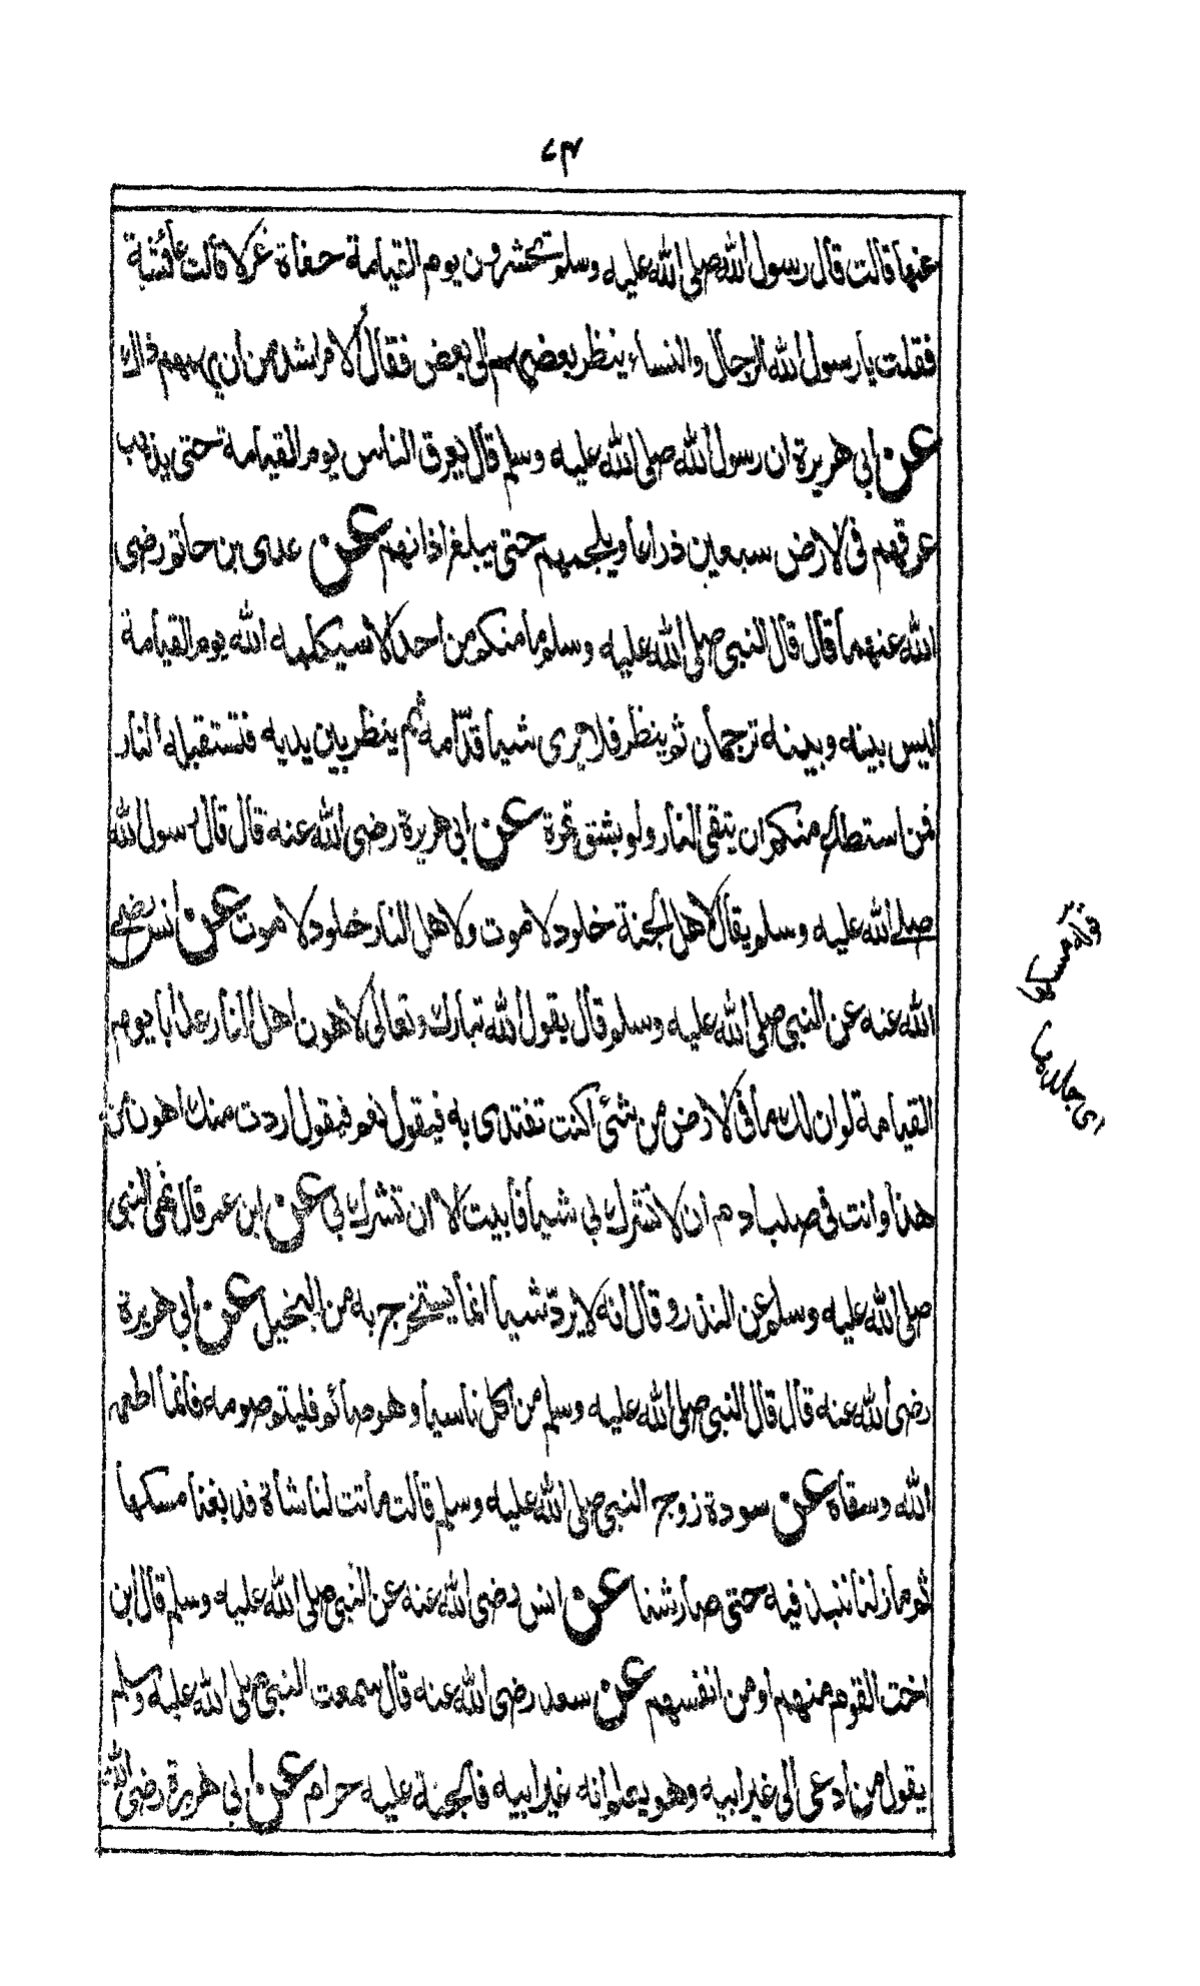 ٧٣
عنها قالت قال رسول الله صلى الله عليه وسلم تحشرون يوم القيامة حفاة غرلا قالت عائشة
فقلت يا رسول الله الرجال والنساء ينظر بعضهم الى بعض فقال الامر اشد من ان يهمهم ذاك
عن ابي هريرة ان رسول الله صلى الله عليه وسلم قال يعرق الناس يوم القيامة حتى يذهب
عرقهم في الارض سبعين ذراعا ويلجمهم حتى يبلغ اذانهم عن عدى بن حاتم رضى
الله عنهما قال قال النبي صلى الله عليه وسلم ما منكم من احد الا سيكلمه الله يوم القيامة
ليس بينه وبينه ترجمان ثم ينظر فلا يرى شيا قدّامه ثم ينظر بين يديه فتستقبله النار
فمن استطاع منكم ان يتقى النار ولو بشق تمرة عن ابى هريرة رضى الله عنه قال قال رسول الله
صلى الله عليه وسلم يقال لاهل الجنة خلود لا موت ولاهل النار خلود لا موت عن انس رضى
الله عنه عن النبي صلى الله عليه وسلم قال يقول الله تبارك وتعالى لاهون اهل النار عذابا يوم
القيامة لو ان لك ما في الارض من شئ اكنت تفتدى به فيقول نعم فيقول اردت منك اهون من
هذا وانت في صلب ادم ان لا تشرك بي شيا فابيت الا ان تشرك بي عن ابن عمر قال نهى النبي
صلى الله عليه وسلم عن النذر و قال انه لا يردّ شيا انما يستخرج به من البخيل عن ابي هريرة
رضى الله عنه قال قال النبي صلى الله عليه وسلم من اكل ناسيا وهو صائم فليتم صومه فانما اطعمه
الله وسقاه عن سودة زوج النبي صلى الله عليه وسلم قالت ماتت لنا شاة فدبغنا مسكها
ثم ما زلنا ننبذ فيه حتى صار شنا عن انس رضى الله عنه عن النبي صلى الله عليه وسلم قال ابن
اخت القوم منهم او من انفسهم عن سعد رضى الله عنه قال سمعت النبي صلى الله عليه وسلم
يقول من ادعى الى غير ابيه وهو يعلم انه غير ابيه فالجنة عليه حرام عن ابي هريرة رضى الله
قوله مسكها
اى جلدها